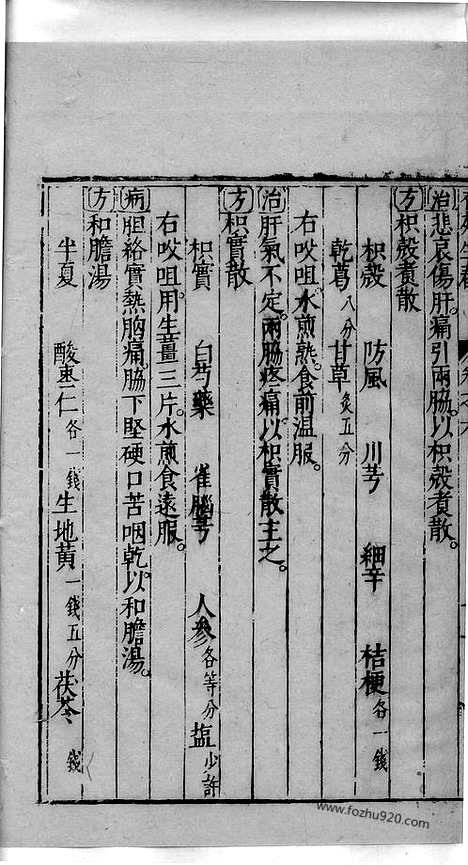 治悲哀傷肝。痛引兩脇。以枳殻煮散。
方枳殻煮散
枳殻　防風　川芎　細辛　桔梗各一錢
乾葛八分甘草炙五分
右㕮咀。水煎熟。食前温服。
治肝氣不定。兩脇疼痛。以枳實散主之。
方枳實散
枳實　白芍藥　雀腦芎　人參各等分塩少許
右㕮咀。用生薑三片。水煎食遠服。
病胆絡實熱胸痛。脇下堅硬口苦咽乾。以和膽湯。
方和膽湯
半夏　酸棗仁各一錢生地黃一錢五分茯苓　錢
www.fozhu920.com